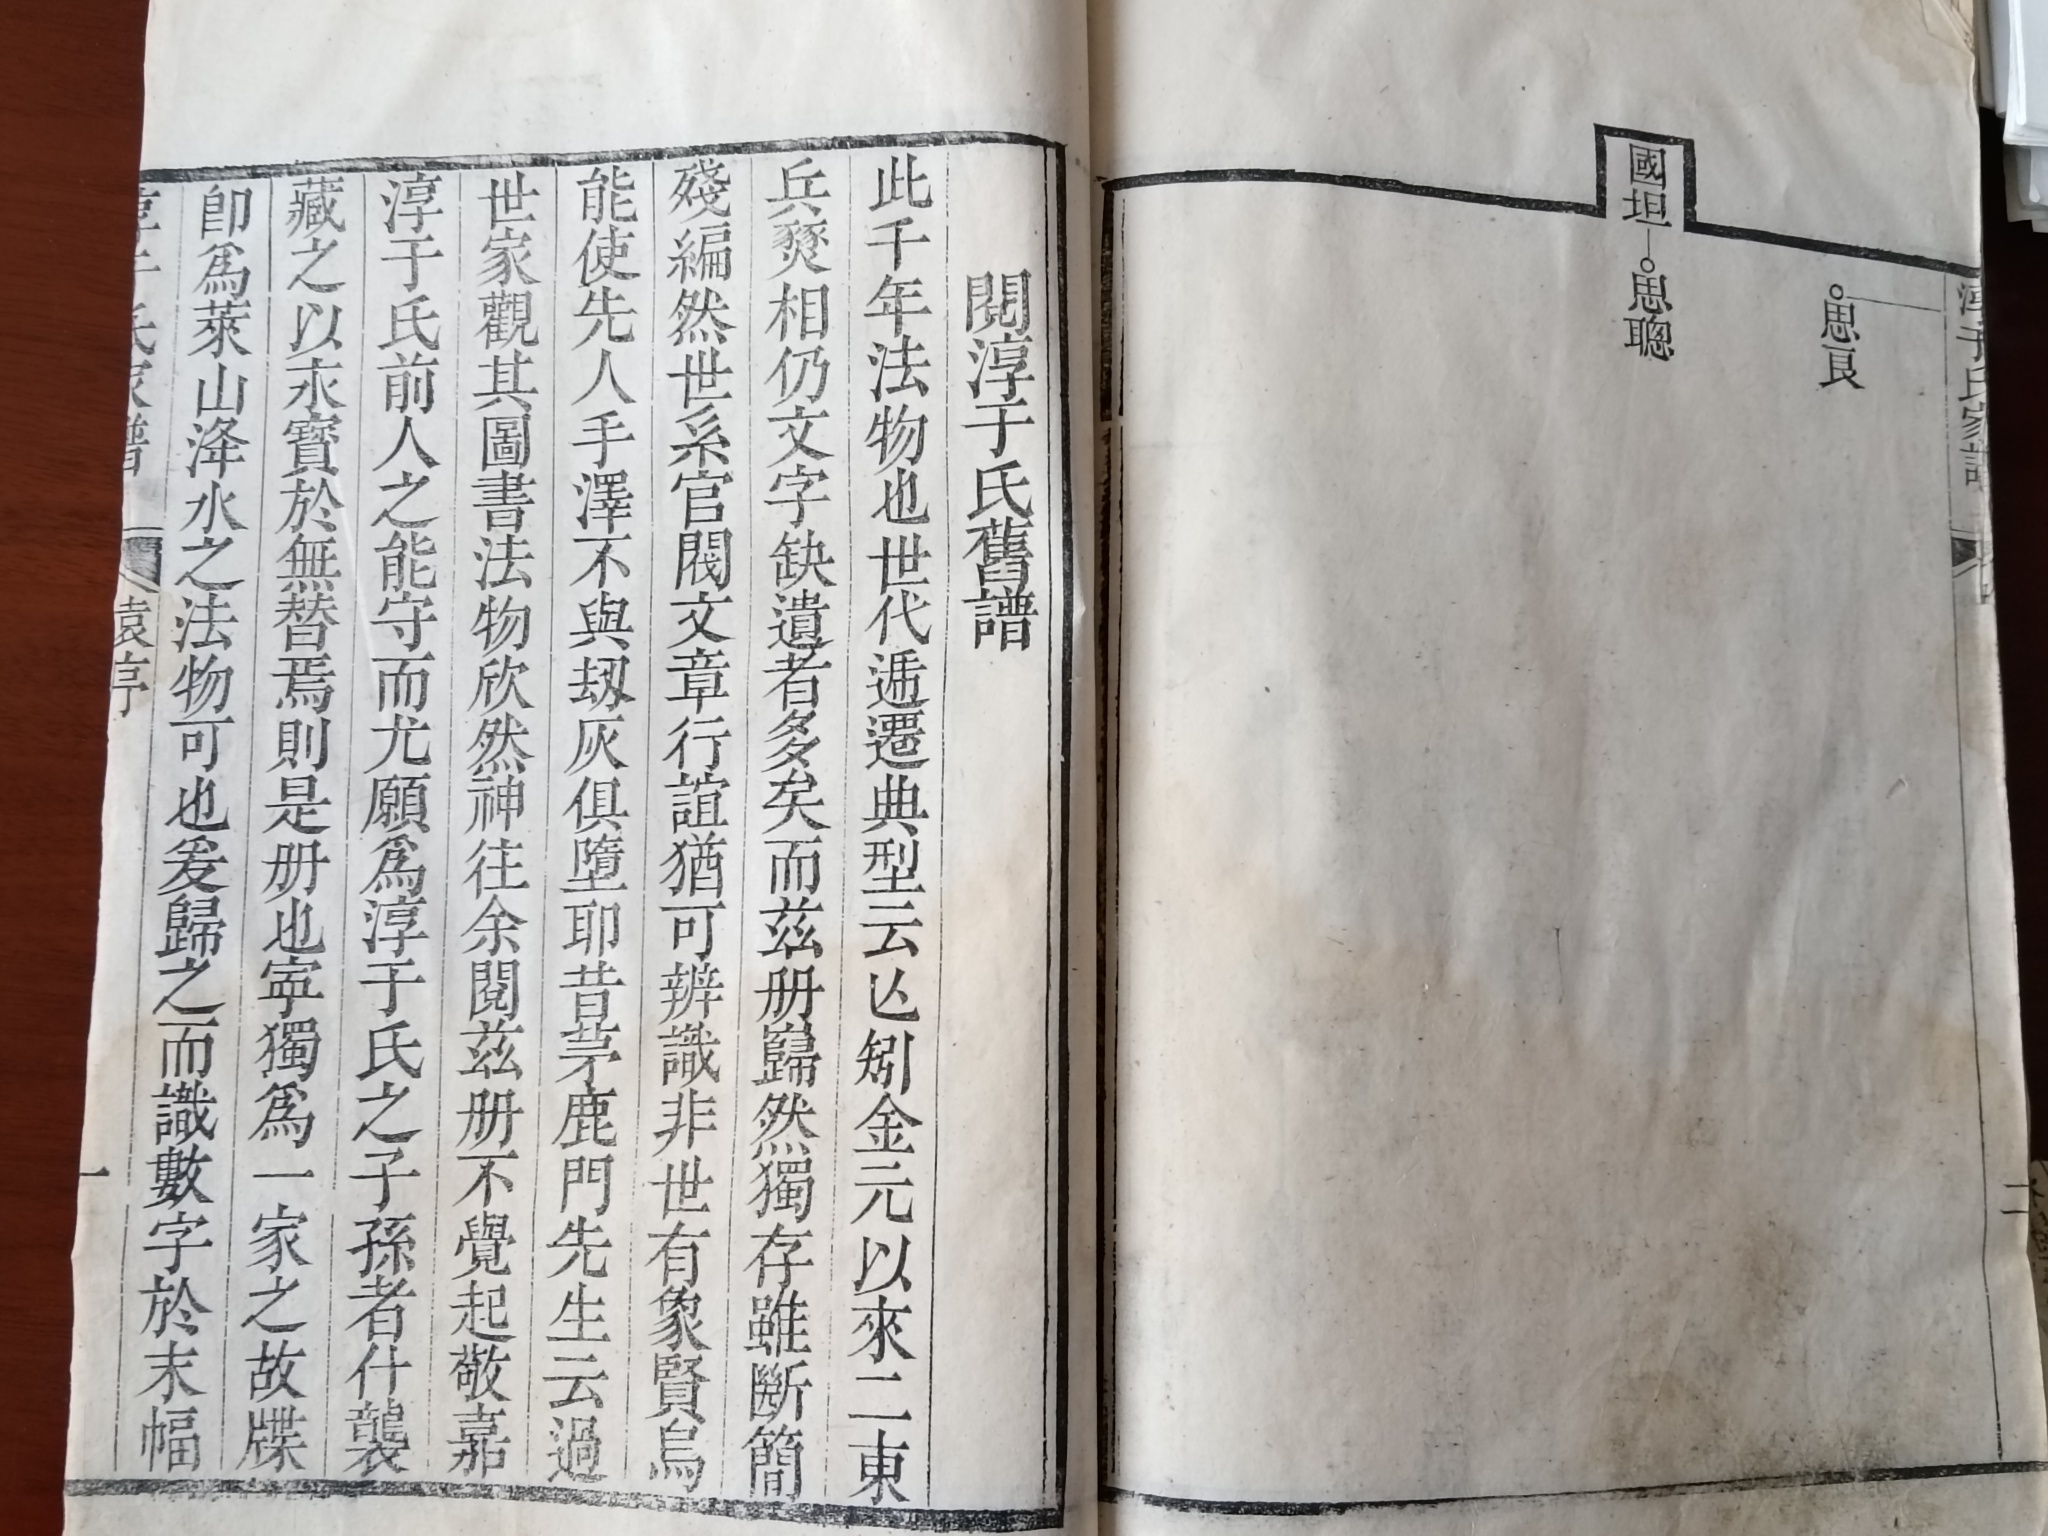 淳于氏家譜
二
思良
國坦
思聰
閱淳于氏舊譜
此千年法物也世代遞遷典型云亾矧金元以來二東
兵燹相仍文字缺遺者多矣而茲册巋然獨存雖斷簡
殘編然世系官閥文章行誼猶可辨識非世有象賢烏
能使先人手澤不與刼灰俱墮耶昔茅鹿門先生云過
世家觀其圖書法物欣然神往余閱茲册不覺起敬嘉
淳于氏前人之能守而尤願為淳于氏之子孫者什襲
藏之以永寶於無替焉則是册也寧獨為一家之故牒
卽為萊山洚水之法物可也爰歸之而識數字於末幅
淳于氏家譜
袁序
一